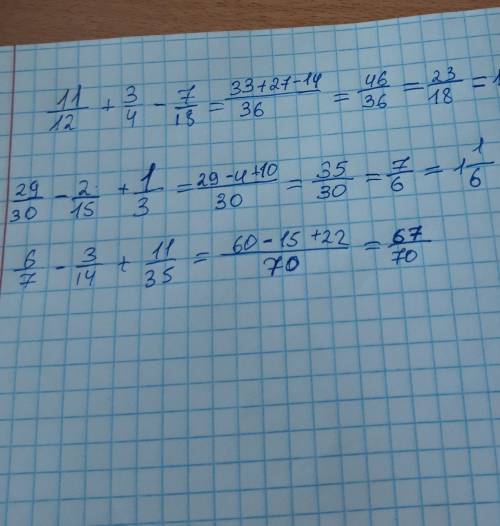 11/12 + 3/4 - 7/18 = 33+27-14/36 = 46/36 = 23/18 = 1
29/30 - 2/15 + 1/3 = 29-4+10/30 = 35/30 = 7/6 = 1 1/6
6/7 - 3/14 + 11/35 = 60-15+22/70 = 67/70